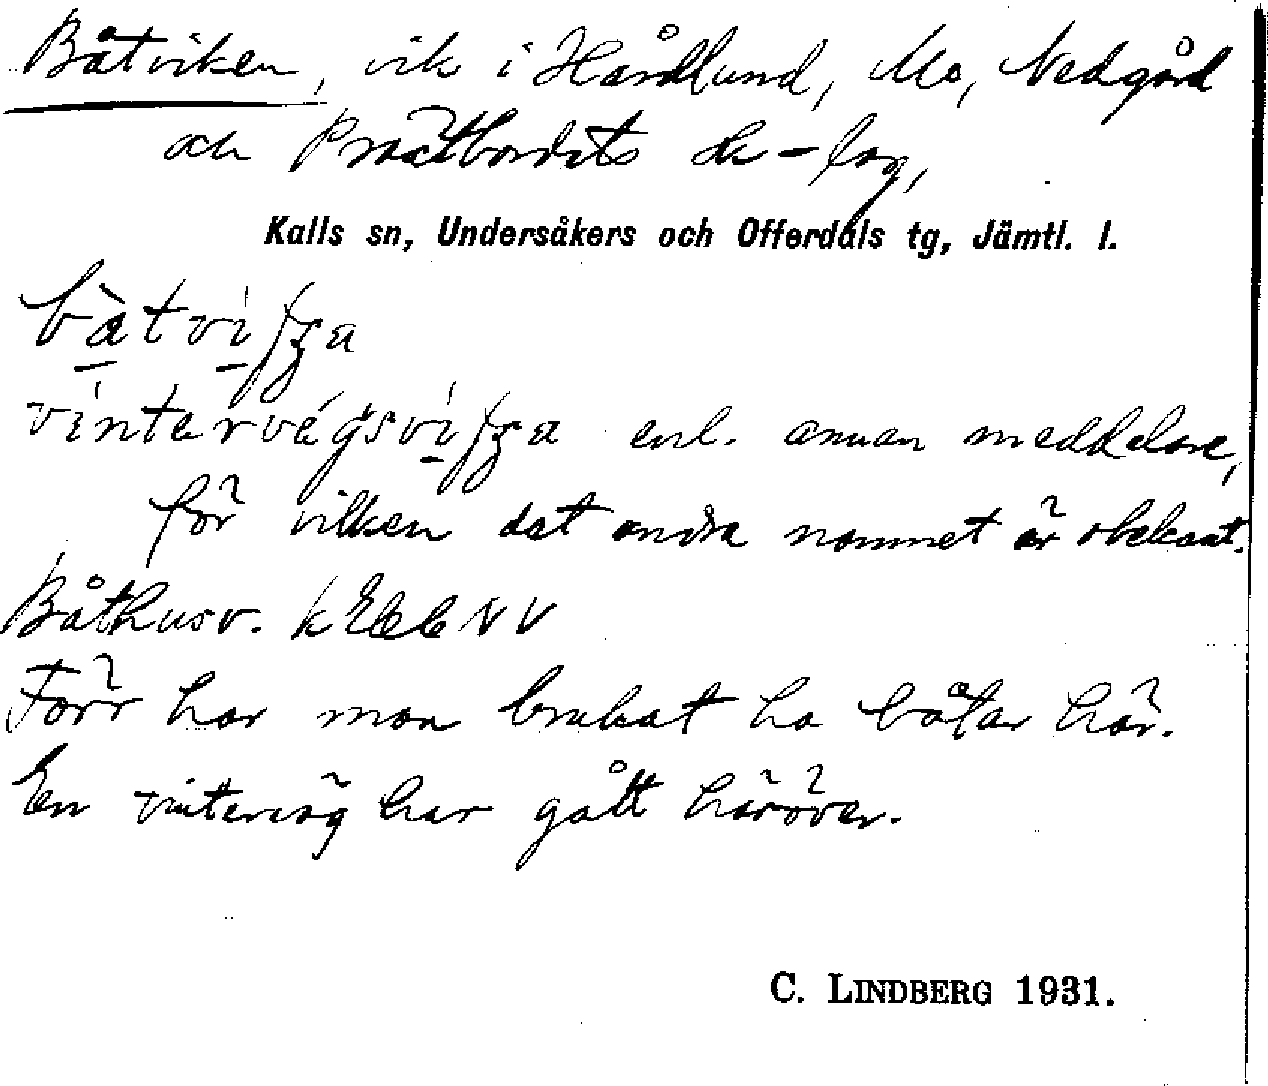 Båtviken, vik i Hårdlund, Mo, Nedgård
och Prästbordets sk-lag,
Kalls sn, Undersåkers och Offerdals tg, Jämtl. l.
enl. annan meddelare,
för vilken det andra namnet är obekant.
Båthusv.
Förr har man brukat ha båtar här.
En vinterväg har gått häröver.
C. LINDBERG 1931.